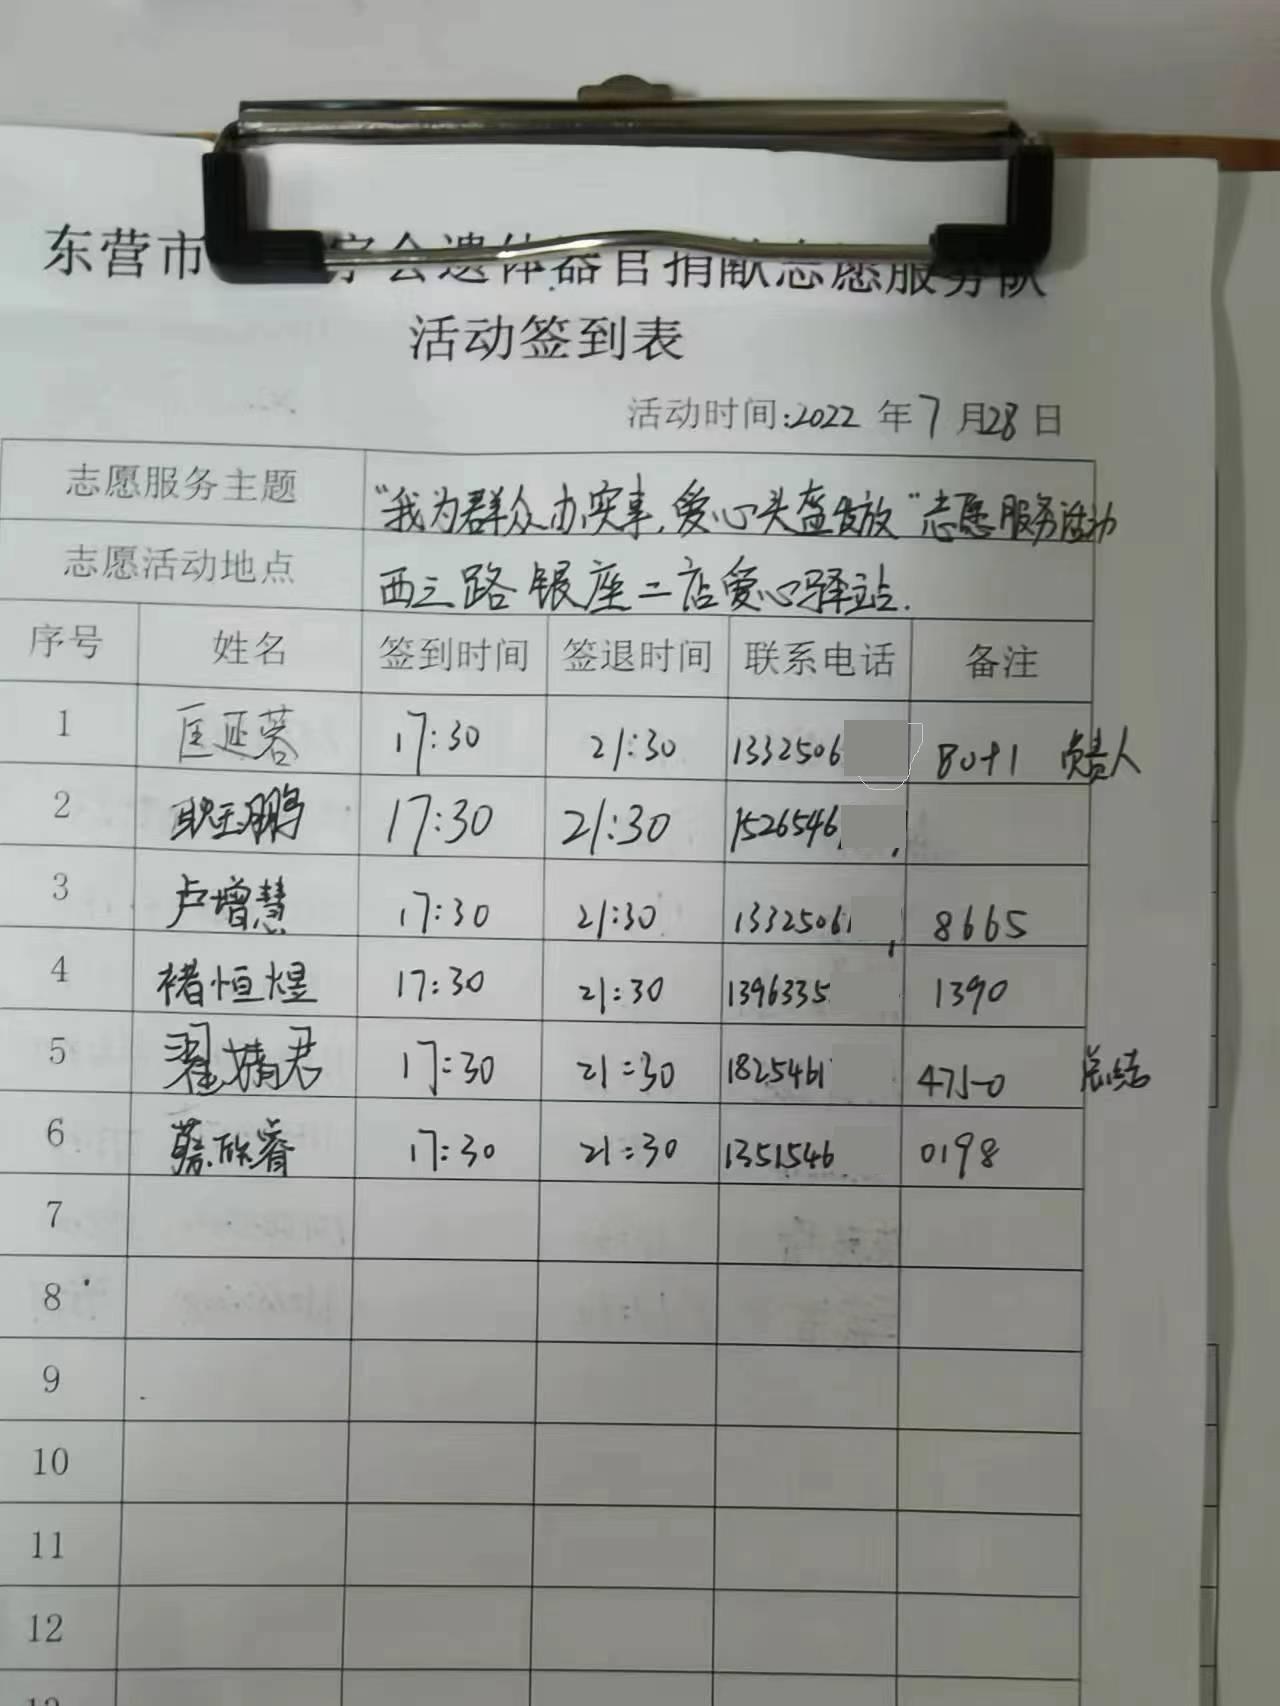 东营市 字会遗体器官捐献志愿服务队
活动签到表
活动时间:2022 年7月28日
志愿服务主题 “我为群众办实事,爱心头盔发放”志愿服务活动
志愿活动地点 西三路银座二店爱心驿站.
序号 姓名 签到时间 签退时间 联系电话 备注
1 匡延蓉 17:30 21:30 1332506 8041 负责人
2 鹏 17:30 21:30 1526546
3 卢增慧 17:30 21:30 1332506 8665
4 褚恒煜 17:30 21:30 1396335 1390
5 翟婧君 17:30 21:30 1825461 4750 总结
6 蔡欣睿 17:30 21:30 1351546 0198
7
8
9
10
11
12